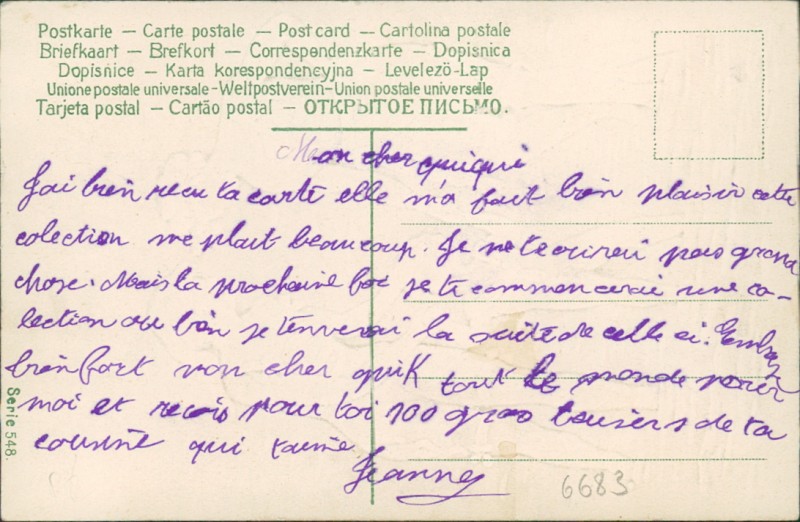 Postkarte — Carte postale — Post card — Cartolina postale
Briefkaart — Brefkort — Correspondenzkarte — Dopisnica
Dopisnice — Karta korespondencyjna — Levelezö-Lap
Unione postale universale - Weltpostverein - Union postale universelle
Tarjeta postal — Cartão postal — ОТКРЫТОЕ ПИСЬМО.
Mon cher quiqui
J'ai bien recu ta carte elle m'a fait bien plaisir cette
colection me plait beaucoup. Je ne tecrirai pas grand
chose. Mais la prochaine foi je te commencerai une co-
lection ou bien je tenverai la suite de celle ci. Embras
bien fort mon cher quik tout le monde pour
moi et recois pour toi 100 gros baisers de ta
cousine qui taime
Jeanne
6683
Serie 548.